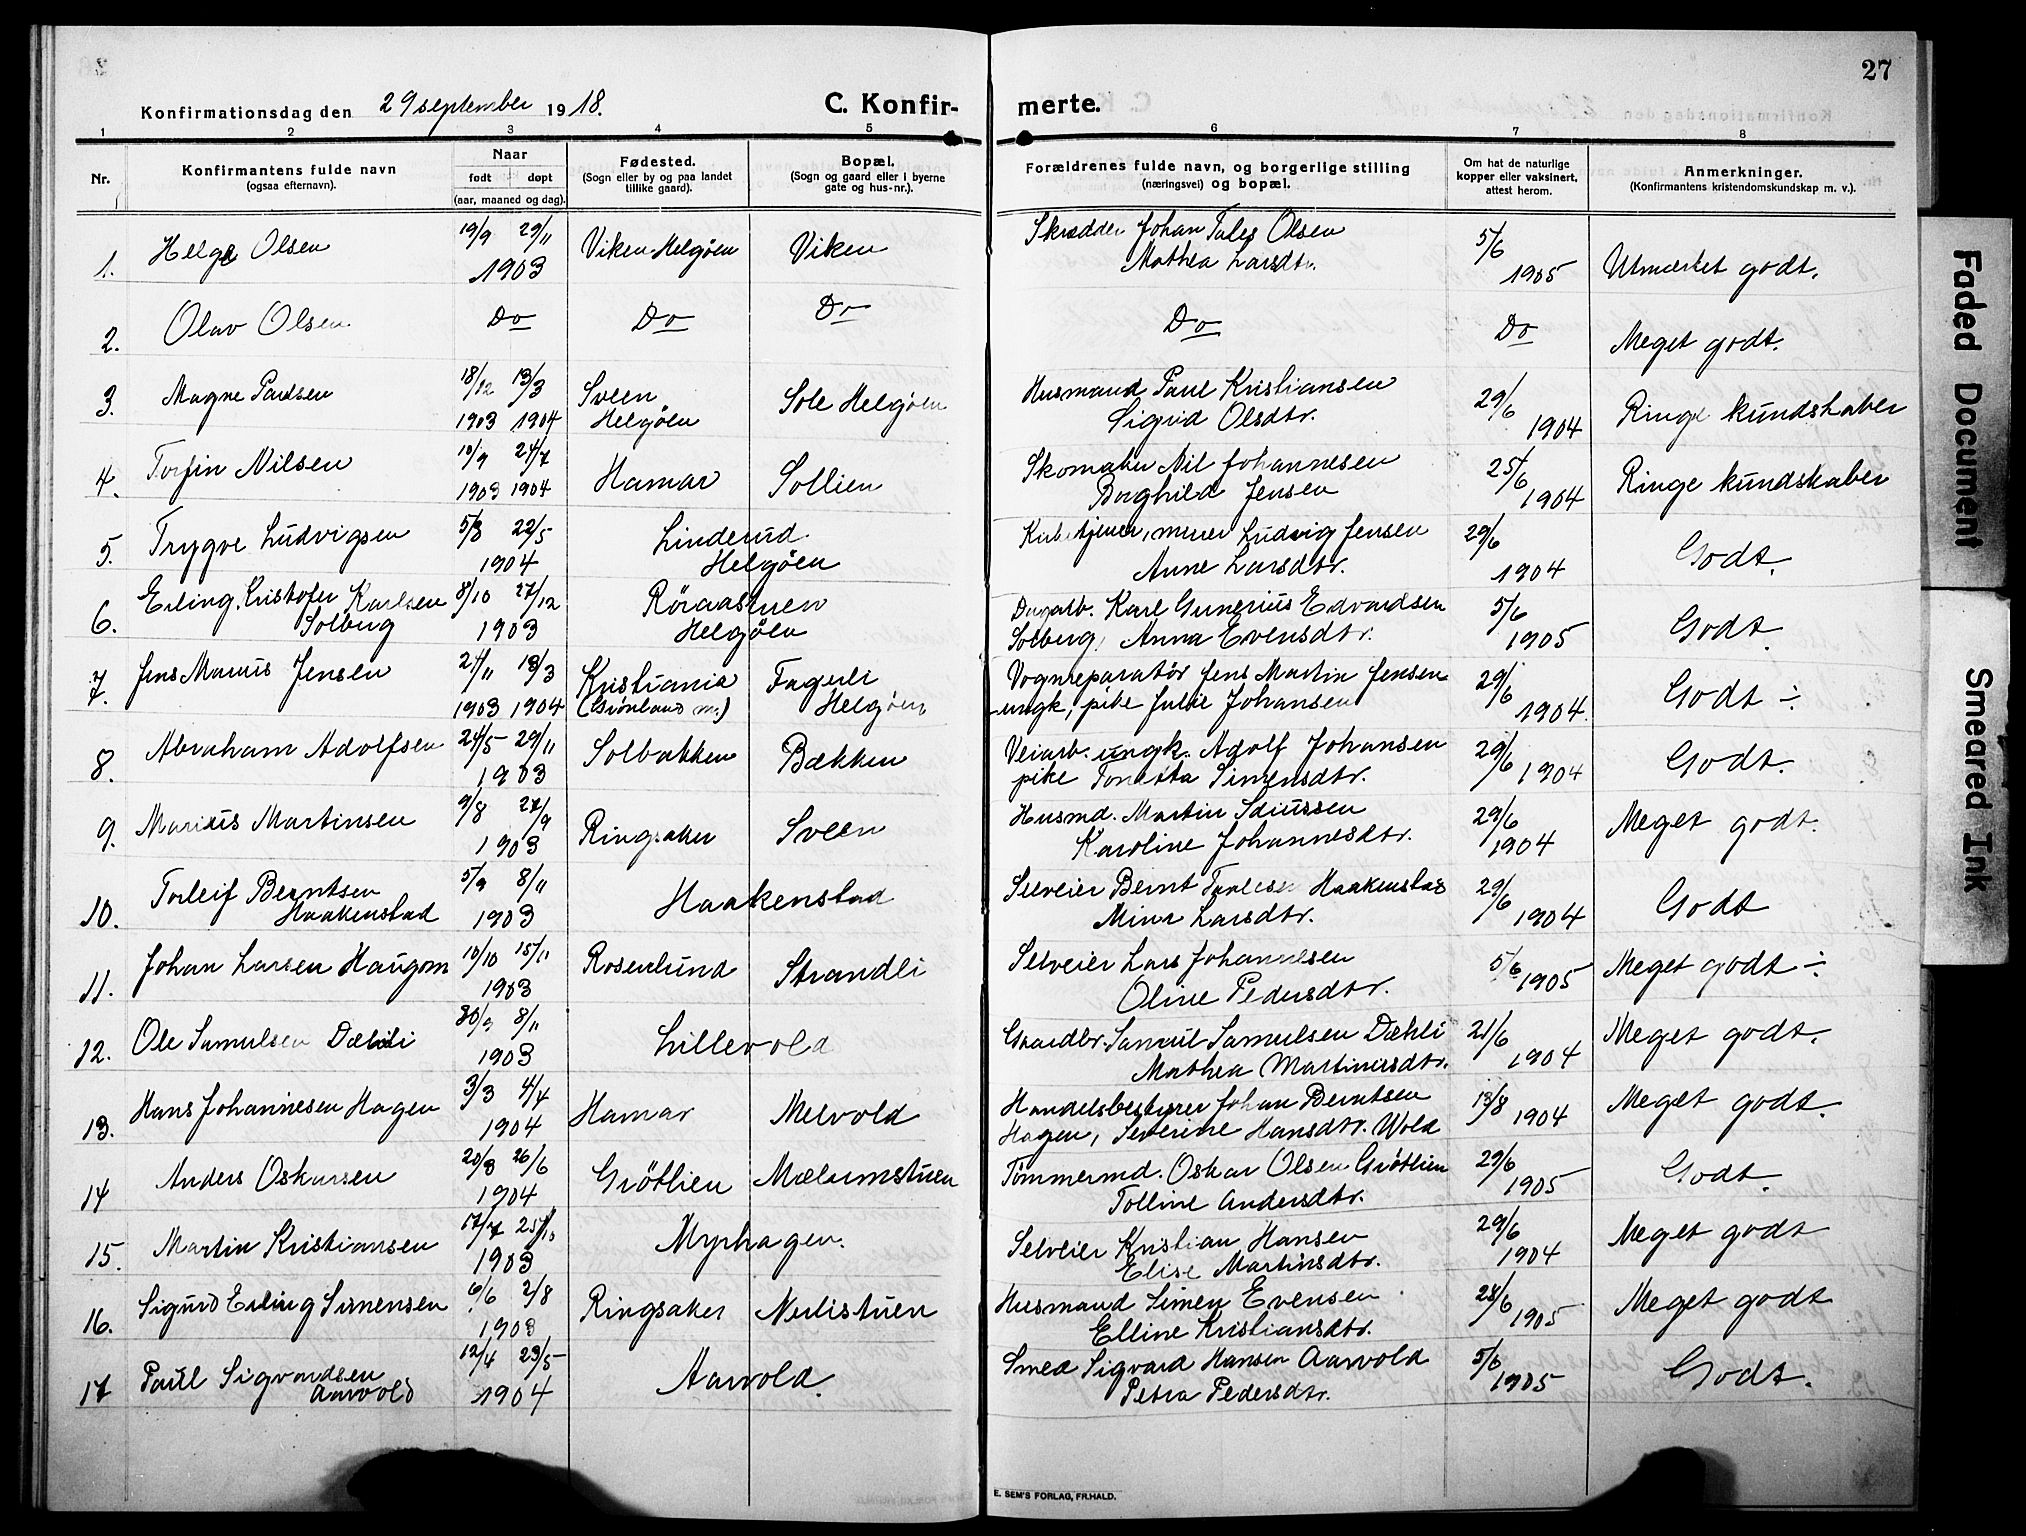 27
Konfirmationsdag den 29 september 1918.
C. Konfirmerte.
1 2 3 4 5 6 7 8
Nr.
Konfirmantens fulde navn
(ogsaa efternavn).
Naar
født døpt
(aar, maaned og dag).
Fødested.
(Sogn eller by og paa landet
tillike gaard).
Bopæl.
(Sogn og gaard eller i byerne
gate og hus-nr.).
Forældrenes fulde navn, og borgerlige stilling
(næringsvei) og bopæl.
Om hat de naturlige
kopper eller vaksinert,
attest herom.
Anmerkninger.
(Konfirmantens kristendomskundskap m. v.).
1. Helge Olsen 19/9 29/11 1903 Viken Helgöen Viken Skrædder Johan Olsen 5/6 1905 Utmærket godt.
Mathea Larsdtr.
2. Olav Olsen Do Do Do Do Do Meget godt.
3. Magne Paulsen 18/12 1903 13/3 1904 Sveen Helgöen Sole Helgöen Husmand Paul Kristiansen 29/6 1904 Ringe kundskaber
Sigrid Olsdtr.
4. Torfin Nilsen 10/9 1903 24/7 1904 Hamar Sollien Skomaker Nil Johannesen 25/6 1904 Ringe kundskaber
Borghild Jensen
5. Trygve Ludvigsen 5/3 22/5 1904 Linderud Helgöen murer Ludvig Jensen 29/6 1904 Godt.
Anne Larsdtr.
6. Erling Kristofer Karlsen 8/10 27/12 1903 Röraastuen Helgöen Dagarb. Karl Gunerius Edvardsen 5/6 1905 Godt.
Solberg Solberg, Anna Evensdtr.
7. Jens Marius Jensen 24/11 1903 13/3 1904 Kristiania (Grönland m.) Fagerli Helgöen Vognreparatör Jens Martin Jensen 29/6 1904. Godt ÷
ungk, pike Julie Johansen
8. Abraham Adolfsen 24/5 29/11 1903 Solbakken Bækken Veiarb. ungk. Adolf Johansen 29/6 1904 Godt.
pike Tonetta Simensdtr.
9. Marius Martinsen 9/8 27/9 1903 Ringsaker Sveen Husmd. Martin 29/6 1904 Meget godt.
Karoline Johannesdtr.
10. Torleif Berntsen 5/9 8/11 1903 Haakenstad Selveier Bernt Haakenstad 29/6 1904 Godt
Haakenstad Mina Larsdtr.
11. Johan Larsen Haugom 10/10 15/11 1903 Rosenlund Strandli Selveier Lars Johannesen 5/6 1905 Meget godt ÷
Oline Pedersdtr.
12. Ole Samulsen Dæhli 30/9 8/11 1903 Lillevold Gaardbr. Samuel Samulsen Dæhli 21/6 1904 Meget godt.
Mathea Martinusdtr.
13. Hans Johannesen Hagen 3/3 4/4 1904 Hamar Melvold Handelsbestyrer Johan Berntsen 13/8 1904 Meget godt.
Hagen, Severine Hansdtr. Wold
14 Anders Oskarsen 20/3 26/6 1904 Grötlien Mælumstuen Tömmermd. Oskar Olsen Grötlien 29/6 1905 Godt.
Tolline Andersdtr.
15. Martin Kristiansen 17/7 25/10 1903 Myrhagen. Selveier Kristian Hansen 29/6 1904 Meget godt
Elise Martinsdtr.
16. Sigurd Erling Simensen 6/6 2/8 1903 Ringsaker Nerlistuen Husmand Simen Evensen 28/6 1905 Meget godt
Elline Kristiansdtr.
17 Paul Sigvardsen 12/4 23/5 1904 Aarvold. Smed Sigvard Hansen Aarvold 5/6 1905 Godt.
Aarvold Petra Pedersdtr.
E. SEM'S FORLAG, FR.HALD.
Faded Document
Smeared Ink